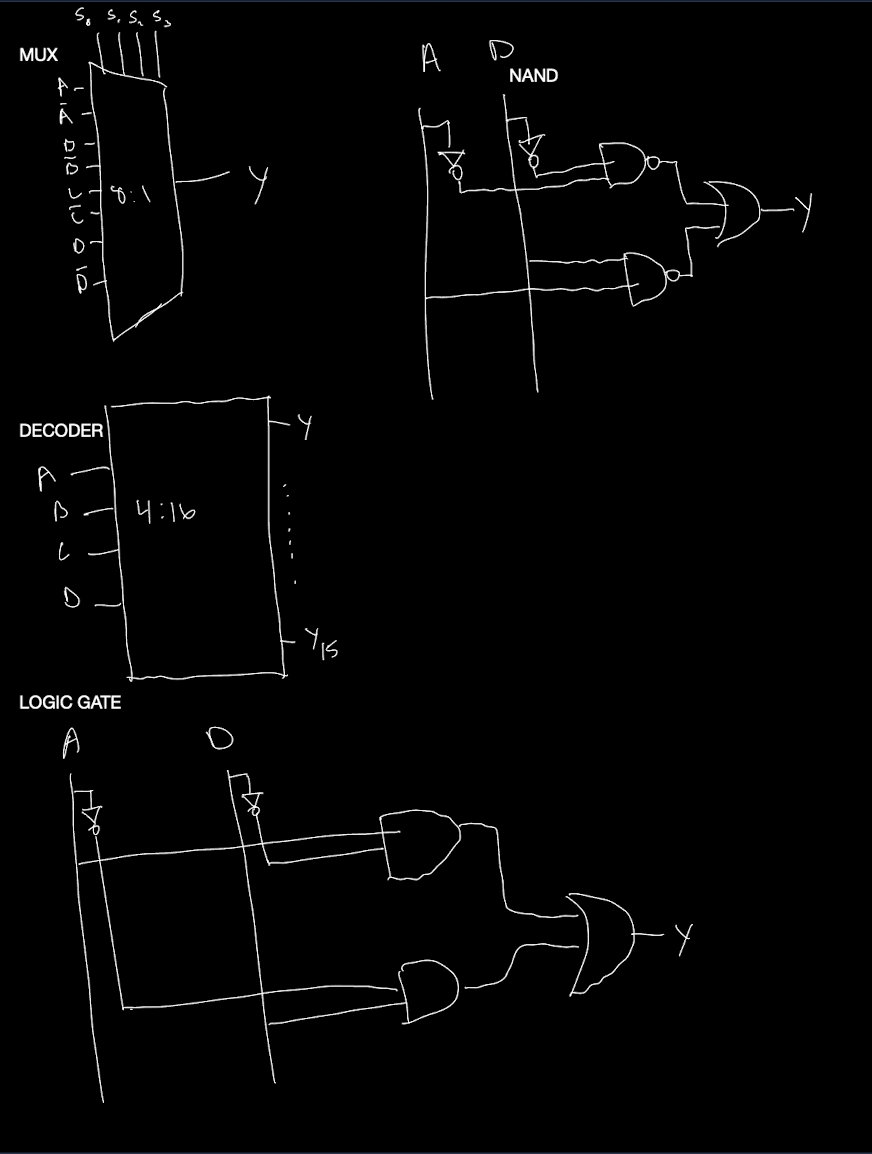 S₀ S₁ S₂ S₃
MUX
A
A̅
B
B̅
C
C̅
D
D̅
8:1
Y
A D
NAND
Y
DECODER
A
B
C
D
4:16
Y
Y₁₅
LOGIC GATE
A D
Y